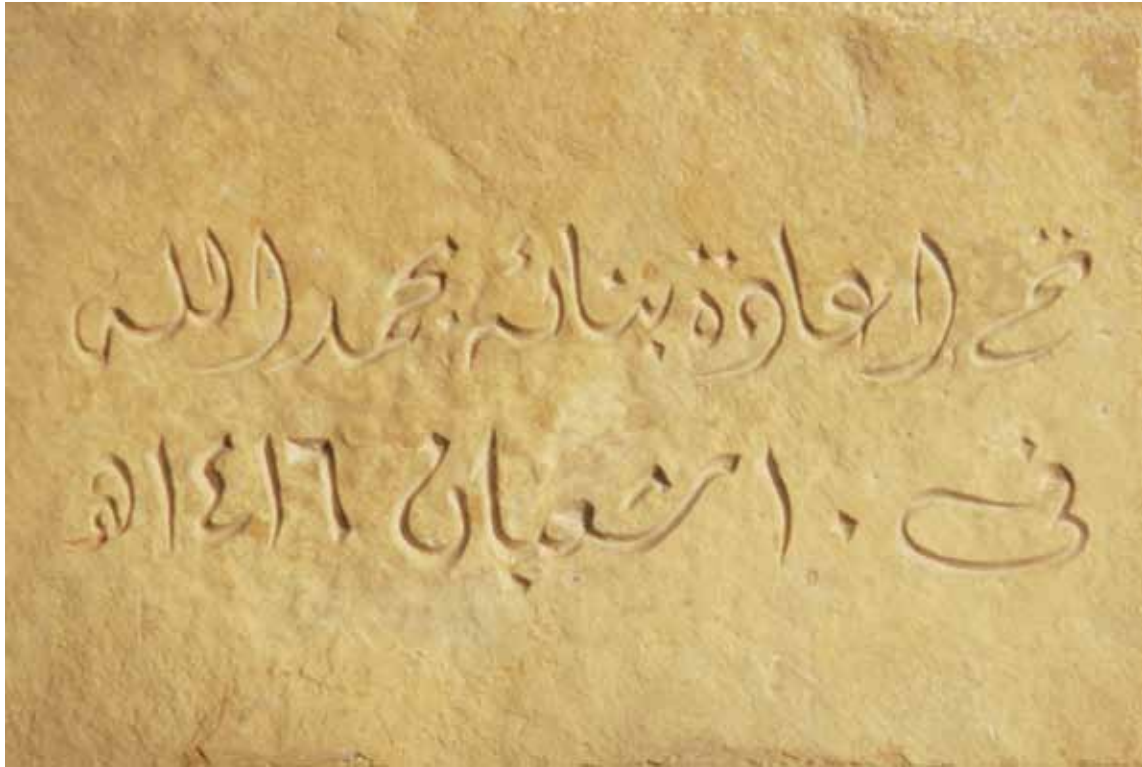 تم اعادة بنائه بحمد الله
في ١٠ شعبان ١٤١٦ه